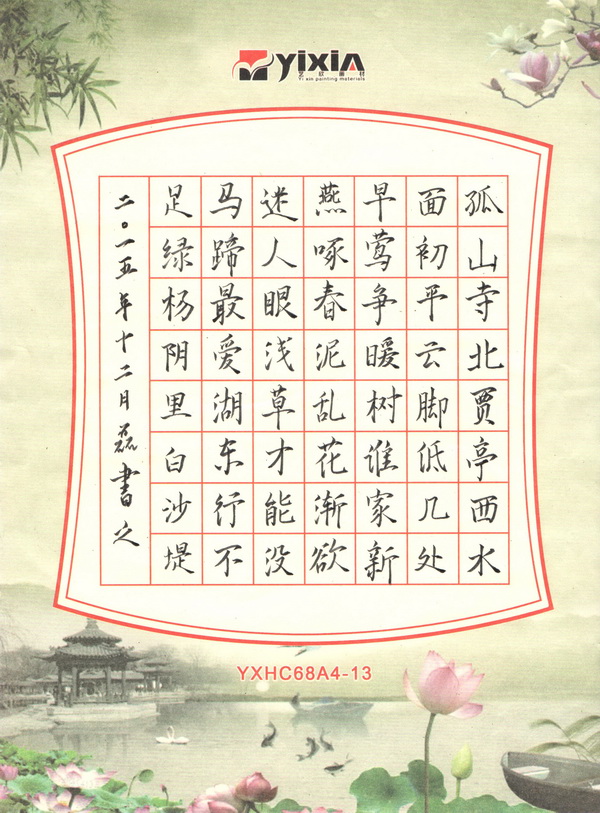 yixin
艺欣画材
Yi xin painting materials
孤山寺北贾亭西水
面初平云脚低几处
早莺争暖树谁家新
燕啄春泥乱花渐欲
迷人眼浅草才能没
马蹄最爱湖东行不
足绿杨阴里白沙堤
二〇一五年十二月磊書之
YXHC68A4-13